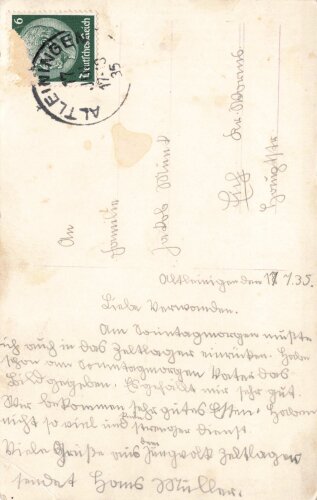 6
Deutsches Reich
ALTLEININGEN
17. 3
35
An
Familie
Jakob
Eich
Kr. Worms
Hauptstr.
Altleinigen den 17 35.
Liebe Verwanden.
Am Sonntagmorgen mußte
ich auch in das Zeltlager einrüken. Habe
schon am Sonntagmorgen Vater das
Bild gegeben. Es gefällt mir sehr gut.
Wir bekommen sehr gutes Essen. Haben
nicht so viel und strenger dienst.
Viele Grüße aus dem Jungvolk Zeltlager
sendet Hans Müller.